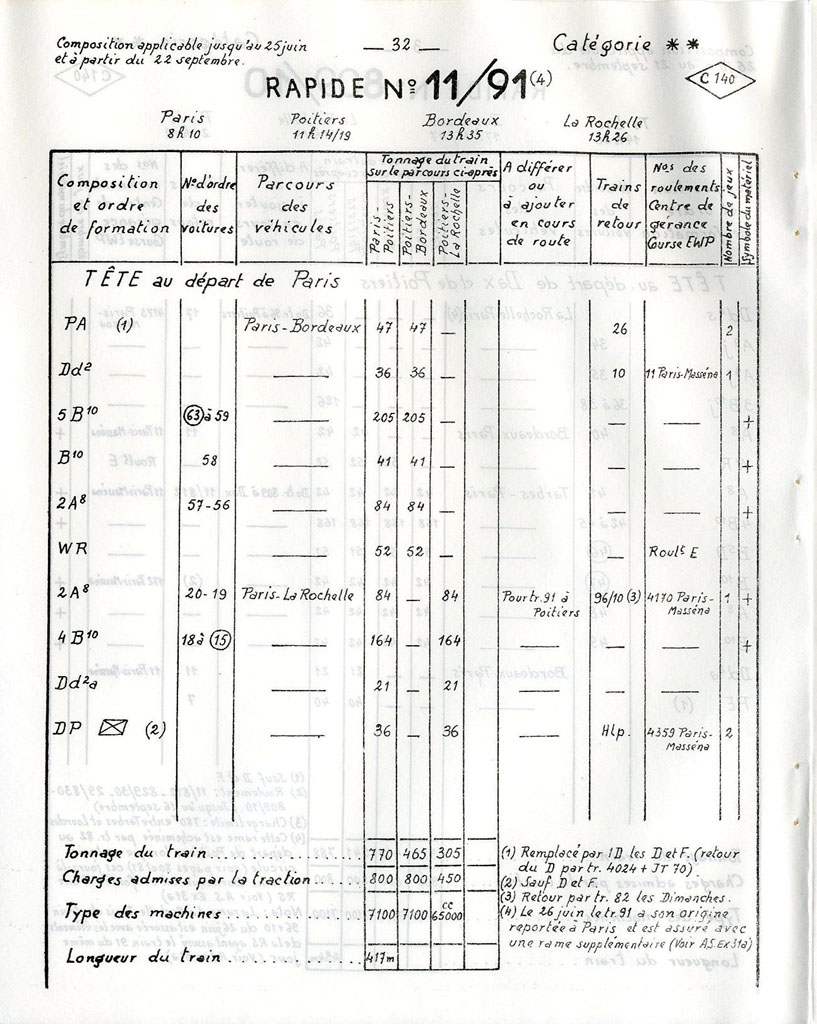 Composition applicable jusqu'au 25 juin — 32 — Catégorie * *
et à partir du 22 septembre.
C 140
RAPIDE Nº 11/91 (4)
Paris Poitiers Bordeaux La Rochelle
8h10 11h14/19 13h35 13h26
Composition et ordre de formation
Nºd'ordre des voitures
Parcours des véhicules
Tonnage du train sur le parcours ci-après
Paris-Poitiers
Poitiers-Bordeaux
Poitiers-La Rochelle
A différer ou à ajouter en cours de route
Trains de retour
Nos des roulements Centre de gérance Course EWP
Nombre de jeux
Symbole du matériel
TÊTE au départ de Paris
PA (1) Paris-Bordeaux 47 47 — 26 2
Dd² —— 36 36 — 10 11 Paris-Masséna 1
5 B¹⁰ 63 à 59 —— 205 205 — — —— +
B¹⁰ 58 —— 41 41 — — —— +
2A⁸ 57-56 —— 84 84 — — —— +
WR —— 52 52 — — Roulᵗ E
2A⁸ 20-19 Paris-La Rochelle 84 — 84 Pour tr. 91 à Poitiers 96/10 (3) 4170 Paris-Masséna 1 +
4 B¹⁰ 18 à 15 —— 164 — 164 —— — —— +
Dd²a —— 21 — 21 —— — ——
DP (2) —— 36 — 36 —— Hlp. 4359 Paris-Masséna 2
Tonnage du train 770 465 305
Charges admises par la traction 800 800 450
Type des machines 7100 7100 CC 65000
Longueur du train 417m
(1) Remplacé par 1D les D et F. (retour
du D par tr. 4024 + JT 70).
(2) Sauf D et F.
(3) Retour par tr. 82 les Dimanches.
(4) Le 26 juin le tr. 91 a son origine
reportée à Paris et est assuré avec
une rame supplémentaire (Voir A.S. Ex 31a)